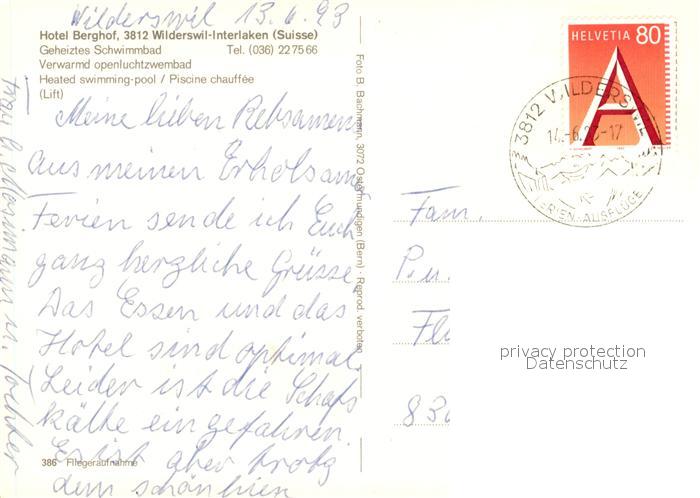 Wilderswil 13.6.93
Hotel Berghof, 3812 Wilderswil-Interlaken (Suisse)
Geheiztes Schwimmbad Tel. (036) 22 75 66
Verwarmd openluchtzwembad
Heated swimming-pool / Piscine chauffée
(Lift)
Meine lieben Rebsamens
Aus meinen Erholsame
Ferien sende ich Euch
ganz herzliche Grüsse
Das Essen und das
Hotel sind optimal
Leider ist die Schafs
kälte eingefahren.
Es ist aber trotz
dem schön hier
386 Fliegeraufnahme
Foto B. Bachmann, 3072 Ostermundigen (Bern) - Reprod. verboten
HELVETIA 80
A
3812 WILDERSWIL
14.-6.93-17
FERIEN-AUSFLÜGE
Fam.
P. u.
Fl
830
privacy protection
Datenschutz